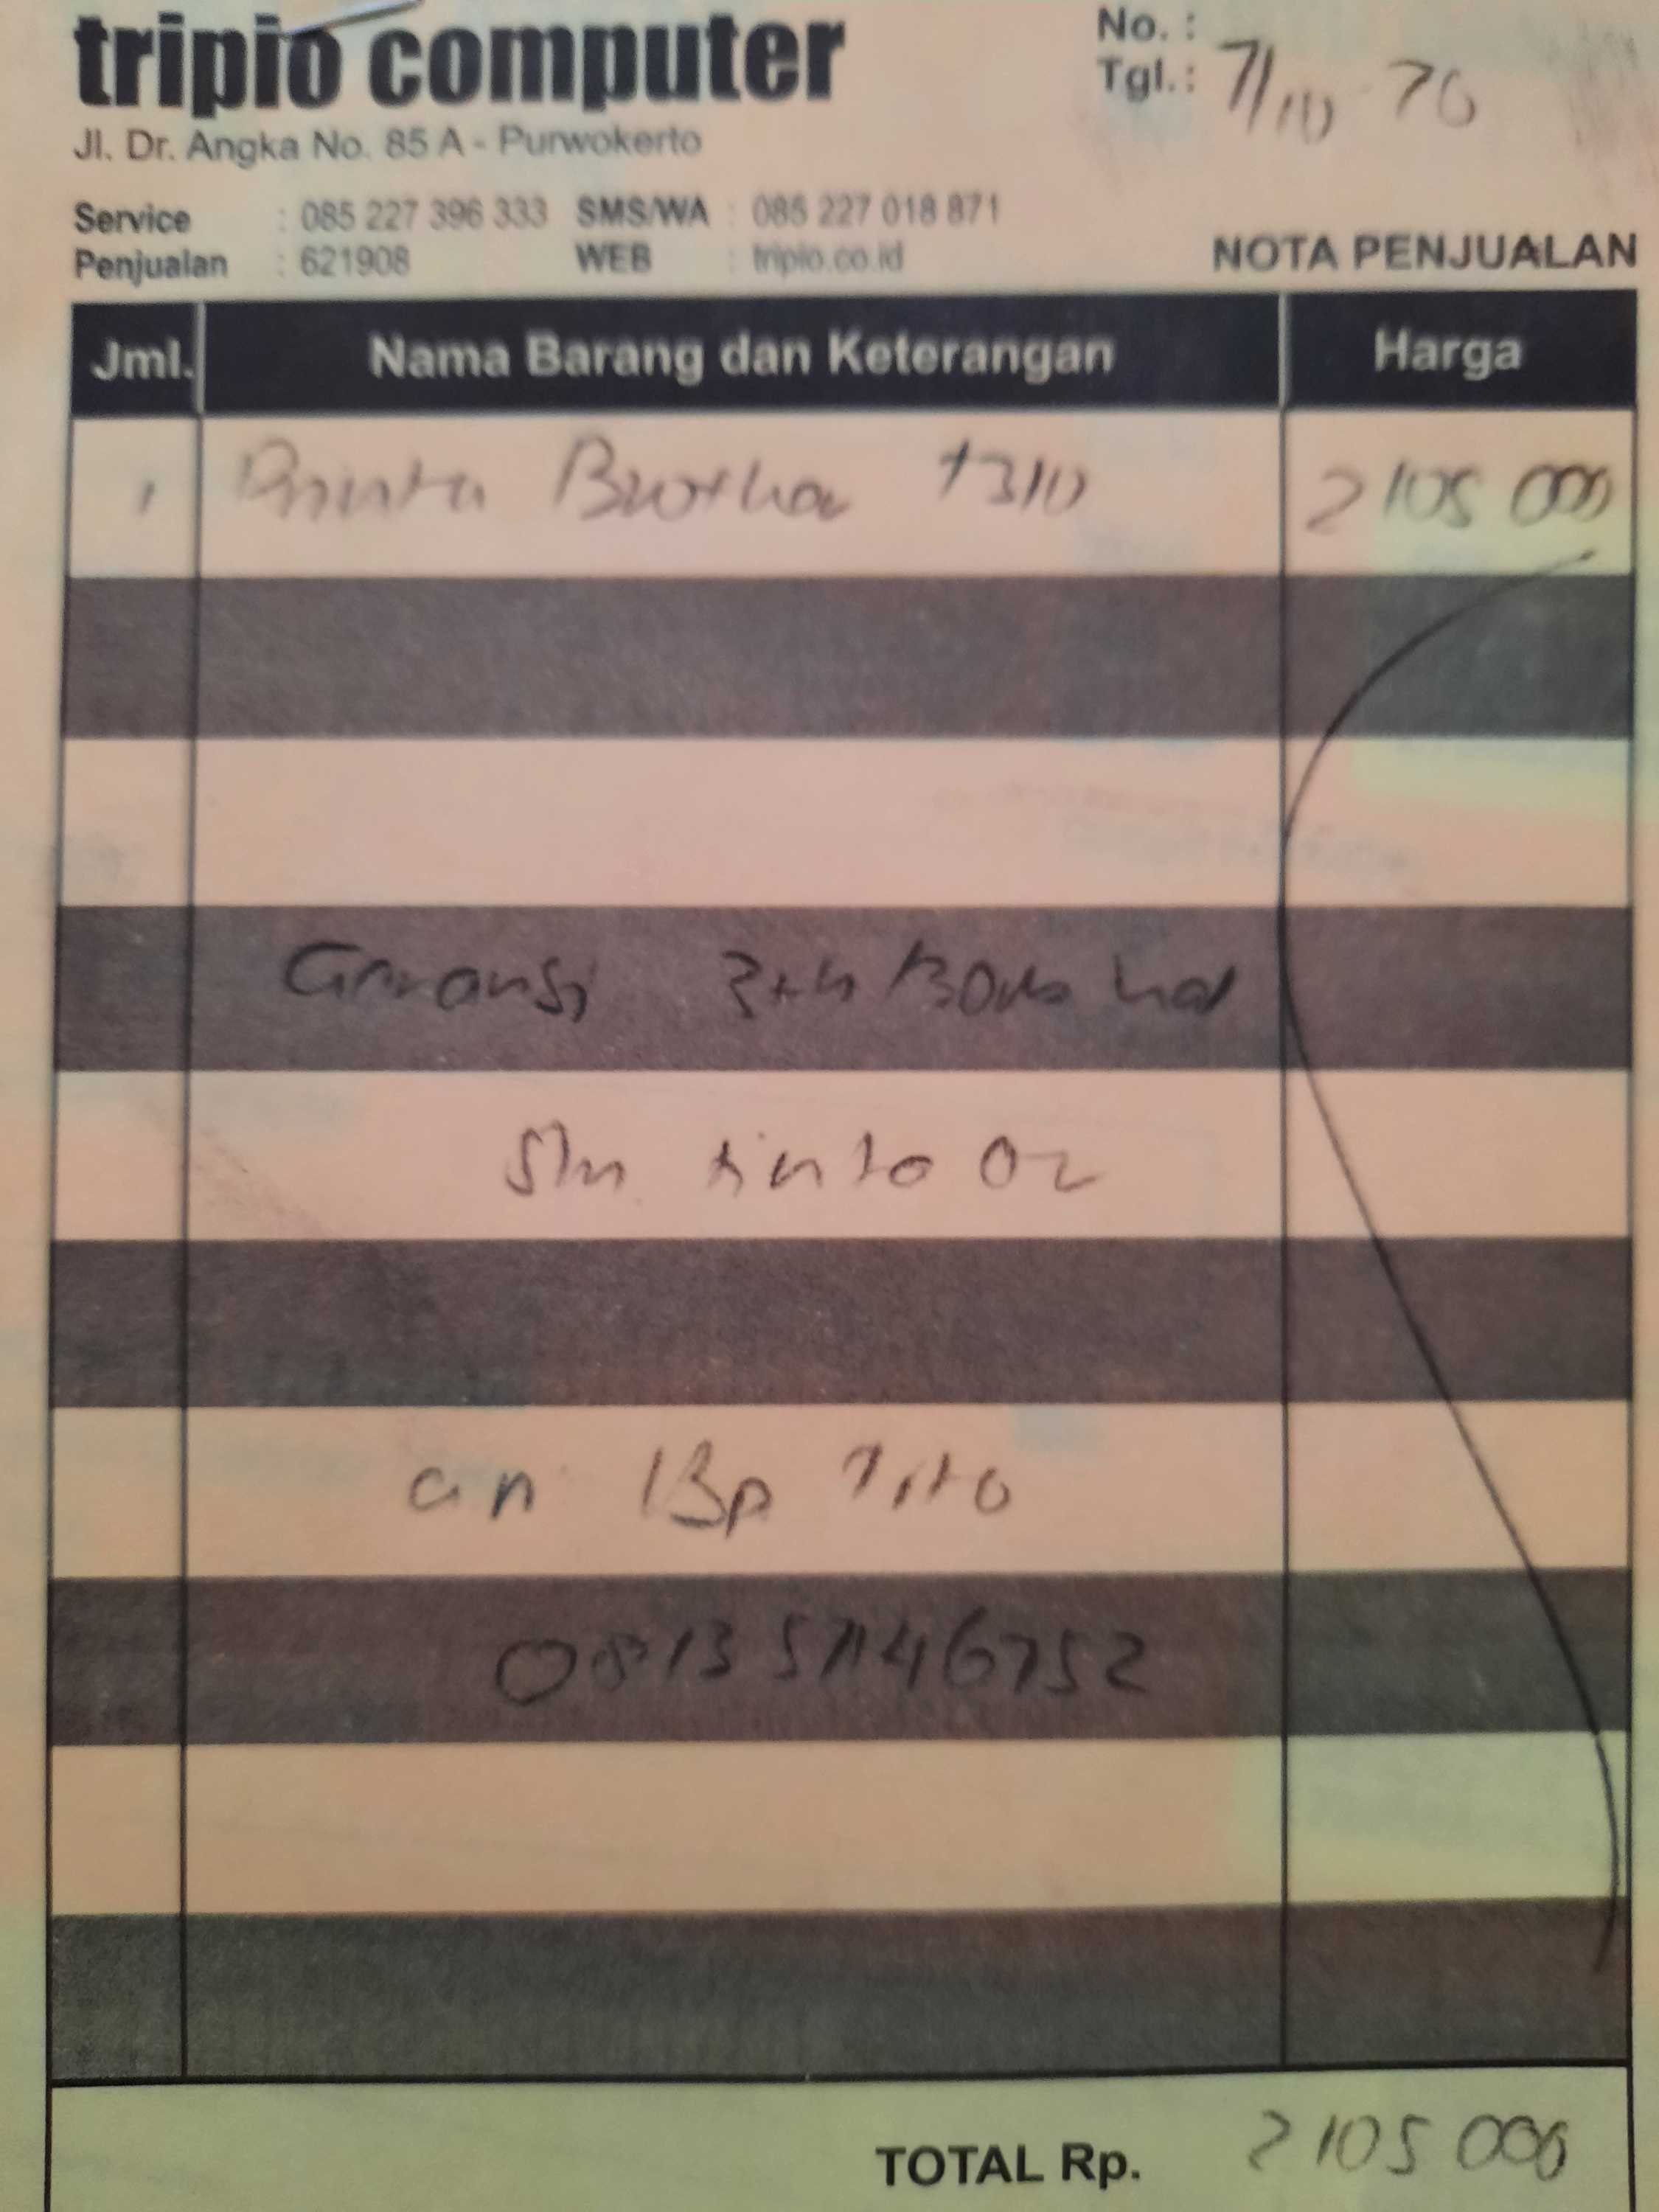 tripio computer
No. :
Tgl. : 7/10 20
Jl. Dr. Angka No. 85 A - Purwokerto
Service : 085 227 396 333 SMS/WA : 085 227 018 871
Penjualan : 621908 WEB : tripio.co.id
NOTA PENJUALAN
Jml. Nama Barang dan Keterangan Harga
1 Printer Brother t310 2105 000
Garansi 2th
tinta
an Bp Tito
TOTAL Rp. 2105 000